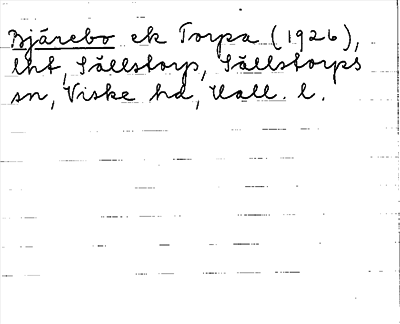 Bjärebo ek Torpa (1926),
lht, Sällstorp, Sällstorps
sn, Viske hd, Hall. l.